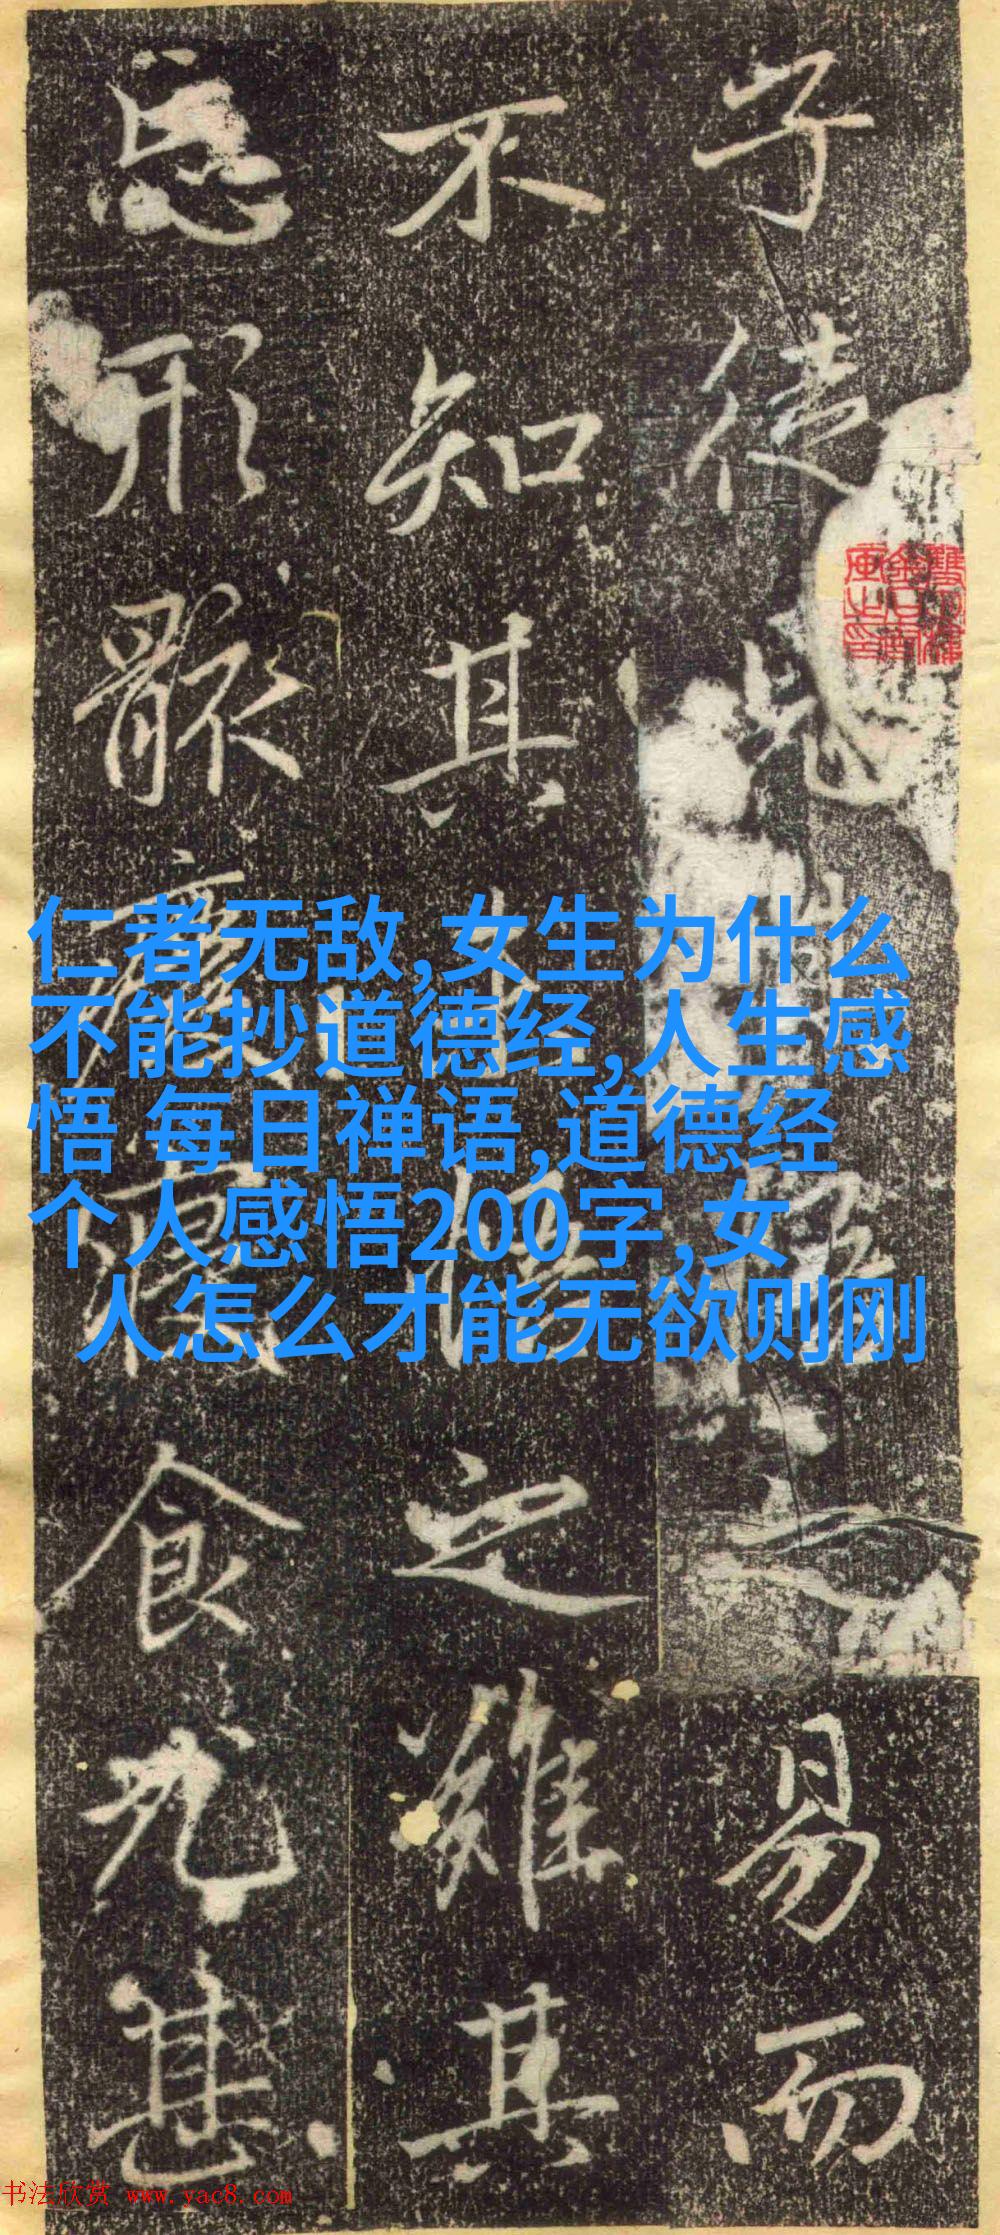 子徒見之易而
不知其之難其
忘形骸廢寢食尤甚
仁者无敌,女生为什么
不能抄道德经,人生感
悟 每日禅语,道德经
个人感悟200字,女
人怎么才能无欲则刚
书法欣赏 www.yac8.com